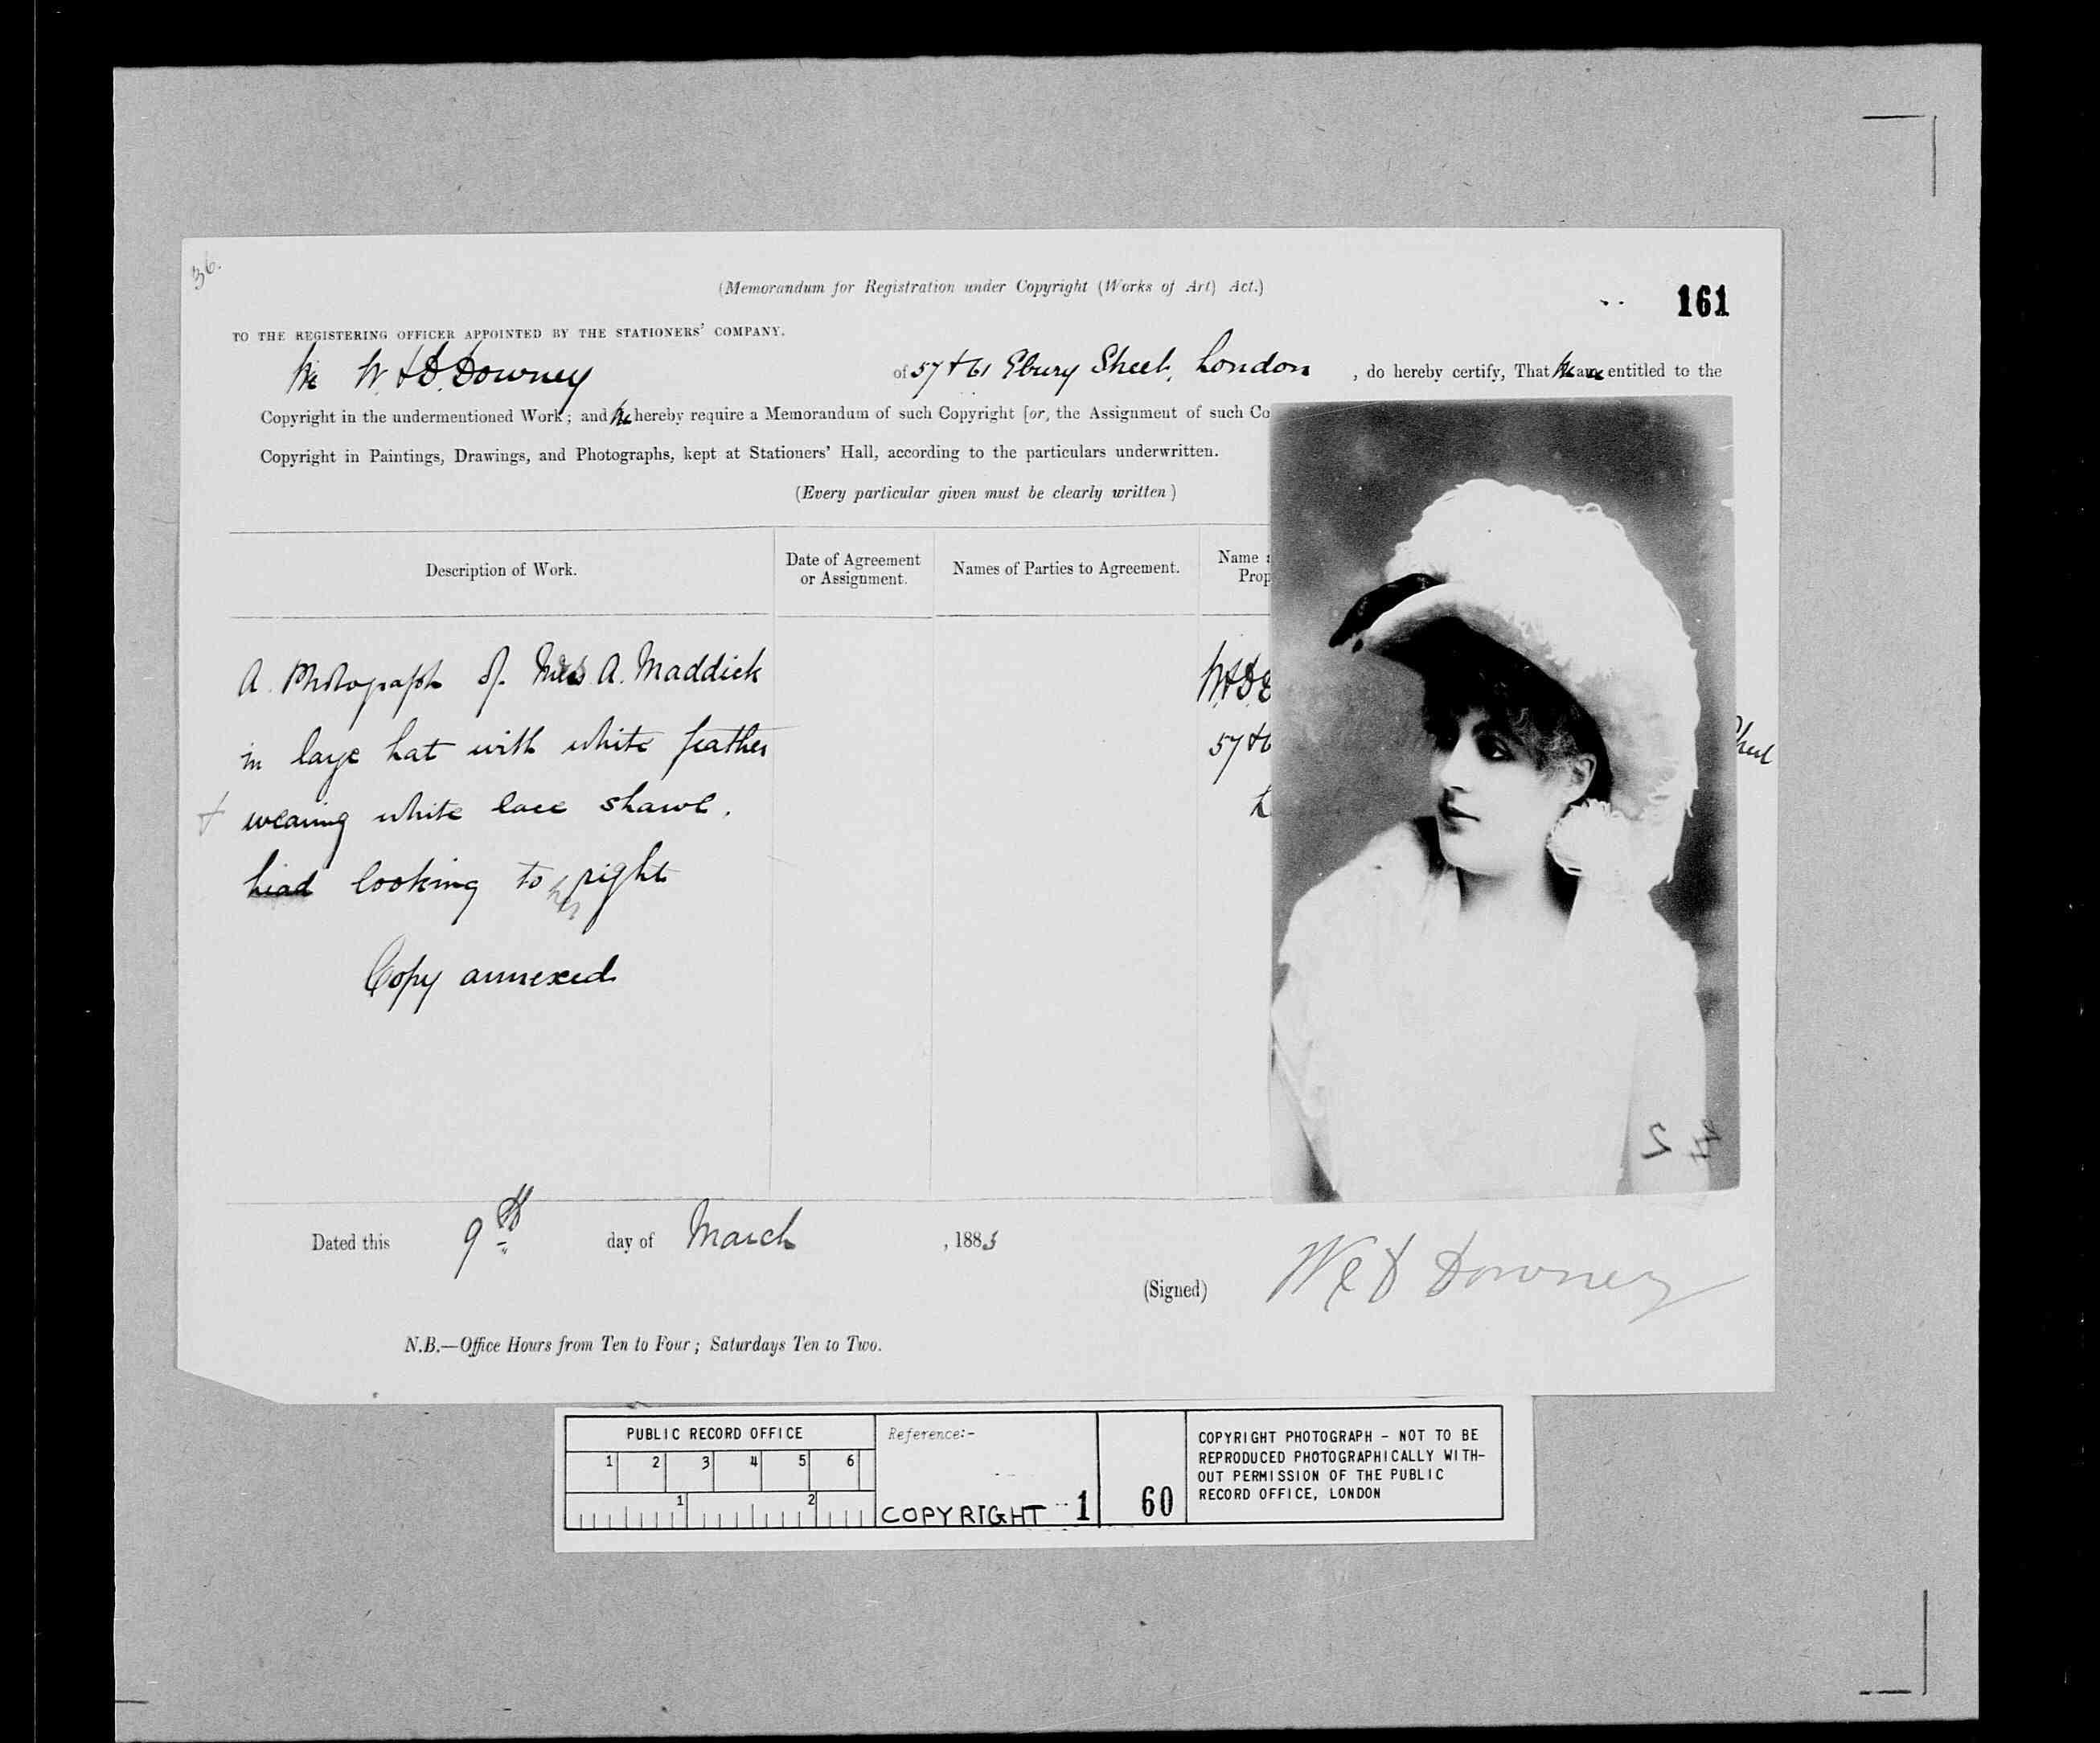 36.
(Memorandum for Registration under Copyright (Works of Art) Act.)
161
TO THE REGISTERING OFFICER APPOINTED BY THE STATIONERS' COMPANY.
We W & D. Downey of 57 & 61 Ebury Street, London , do hereby certify, That We are entitled to the
Copyright in the undermentioned Work; and We hereby require a Memorandum of such Copyright [or, the Assignment of such Co
Copyright in Paintings, Drawings, and Photographs, kept at Stationers' Hall, according to the particulars underwritten.
(Every particular given must be clearly written)
Description of Work.
Date of Agreement
or Assignment.
Names of Parties to Agreement.
Name
Prop
A Photograph of Mrs A. Maddick
in large hat with white feather
& wearing white lace shawl.
head looking to her right
Copy annexed
W & D
57 & 6
L
Street
42
Dated this 9th day of March , 1885
(Signed) W & D Downey
N.B.—Office Hours from Ten to Four; Saturdays Ten to Two.
PUBLIC RECORD OFFICE
1 2 3 4 5 6
1 2
Reference:-
COPYRIGHT 1
60
COPYRIGHT PHOTOGRAPH - NOT TO BE
REPRODUCED PHOTOGRAPHICALLY WITH-
OUT PERMISSION OF THE PUBLIC
RECORD OFFICE, LONDON